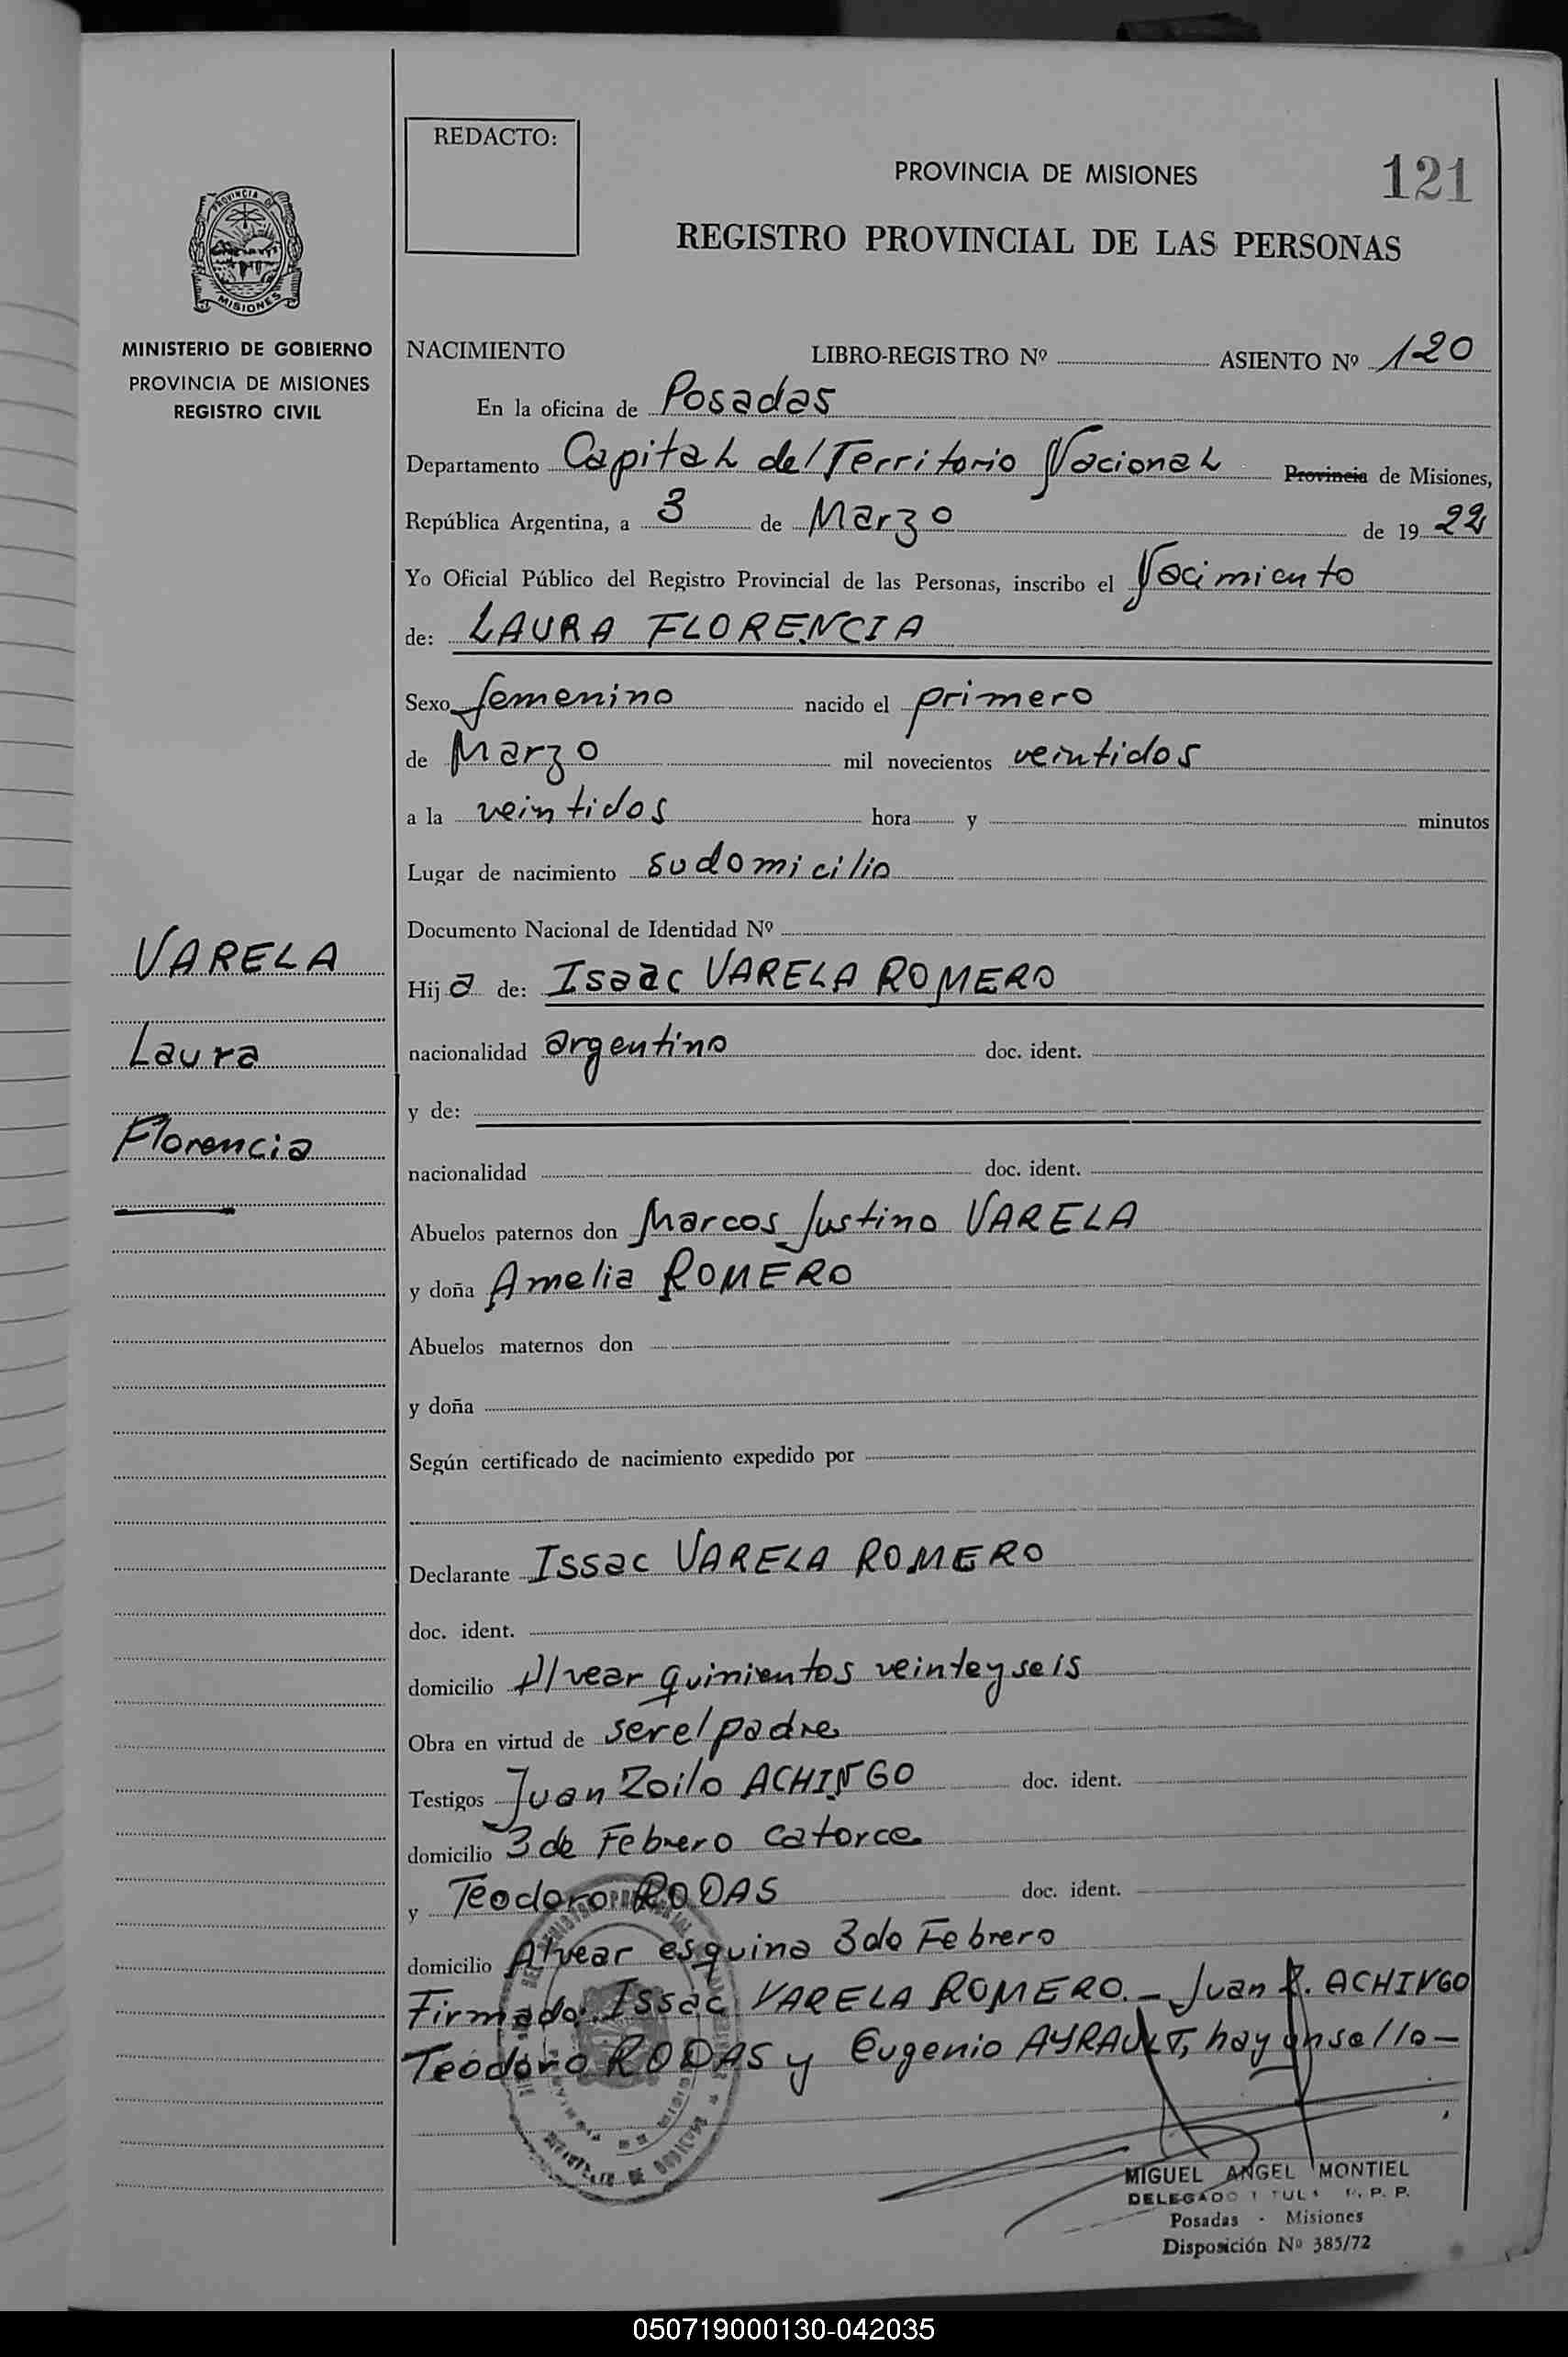 REDACTO:
PROVINCIA DE MISIONES
121
REGISTRO PROVINCIAL DE LAS PERSONAS
PROVINCIA DE
MISIONES
MINISTERIO DE GOBIERNO
PROVINCIA DE MISIONES
REGISTRO CIVIL
NACIMIENTO LIBRO-REGISTRO Nº ASIENTO Nº 120
En la oficina de Posadas
Departamento Capital del Territorio Nacional Provincia de Misiones,
República Argentina, a 3 de Marzo de 19 22
Yo Oficial Público del Registro Provincial de las Personas, inscribo el Nacimiento
de: LAURA FLORENCIA
Sexo femenino nacido el primero
de Marzo mil novecientos veintidos
a la veintidos hora y minutos
Lugar de nacimiento su domicilio
Documento Nacional de Identidad Nº
VARELA
Hij a de: Isaac VARELA ROMERO
Laura
nacionalidad argentino doc. ident.
y de:
Florencia
nacionalidad doc. ident.
Abuelos paternos don Marcos Justino VARELA
y doña Amelia ROMERO
Abuelos maternos don
y doña
Según certificado de nacimiento expedido por
Declarante Issac VARELA ROMERO
doc. ident.
domicilio Alvear quinientos veinteyseis
Obra en virtud de ser el padre
Testigos Juan Zoilo ACHINGO doc. ident.
domicilio 3 de Febrero catorce
y Teodoro RODAS doc. ident.
domicilio Alvear esquina 3 de Febrero
Firmado: Issac VARELA ROMERO.- Juan Z. ACHINGO
Teodoro RODAS y Eugenio AYRAULT, hay un sello-
MIGUEL ANGEL MONTIEL
DELEGADO P. P.
Posadas - Misiones
Disposición Nº 385/72
050719000130-042035